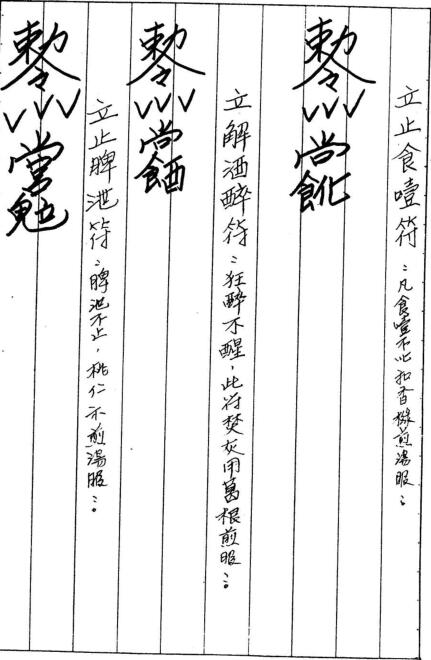 立止食噎符：凡食噎不止扣香椽煎湯服：
敕令
立解酒醉符：狂醉不醒，此符焚灰用葛根煎服：。
敕令
立止脾泄符：脾泄不止，桃仁木煎湯服：。
敕令